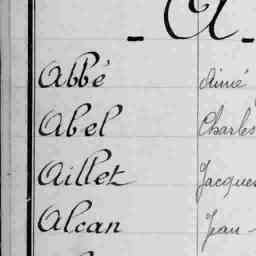 - A -
Abbé Aimé
Abel Charles
Aillet Jacques
Alcan Jean -